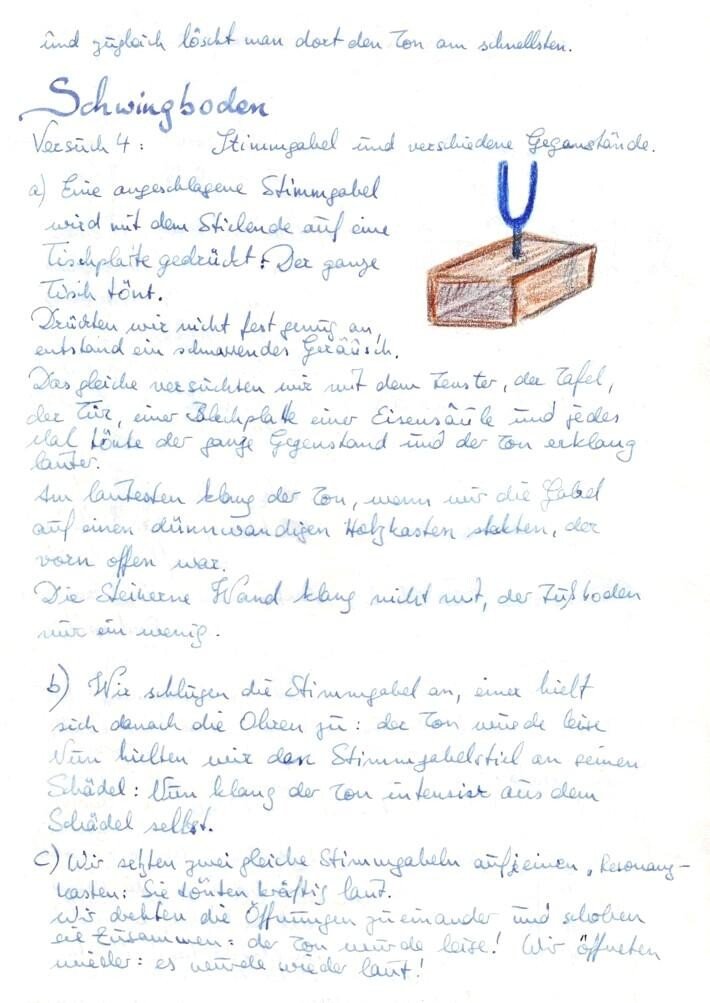 und zugleich löscht man dort den Ton am schnellsten.
Schwingboden
Versuch 4: Stimmgabel und verschiedene Gegenstände.
a) Eine angeschlagene Stimmgabel
wird mit dem Stielende auf eine
Tischplatte gedrückt: Der ganze
Tisch tönt.
Drückten wir nicht fest genug an,
entstand ein schnarrendes Geräusch.
Das gleiche versuchten wir mit dem Fenster, der Tafel,
der Tür, einer Blechplatte einer Eisensäule und jedes
Mal tönte der ganze Gegenstand und der Ton erklang
lauter.
Am lautesten klang der Ton, wenn wir die Gabel
auf einen dünnwandigen Holzkasten stekten, der
vorn offen war.
Die Steinerne Wand klang nicht mit, der Fußboden
nur ein wenig.
b) Wir schlugen die Stimmgabel an, einer hielt
sich danach die Ohren zu: der Ton wurde leise
Nun hielten wir den Stimmgabelstiel an seinen
Schädel: Nun klang der Ton intensiv aus dem
Schädel selbst.
c) Wir setzten zwei gleiche Stimmgabeln auf je einen Resonanz-
kasten: Sie tönten kräftig laut.
Wir drehten die Öffnungen zueinander und schoben
sie zusammen: der Ton wurde leise! Wir öffneten
wieder: es wurde wieder laut!